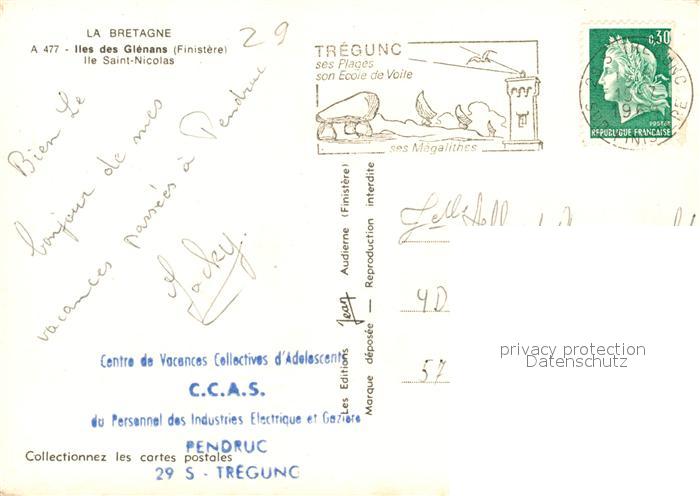 LA BRETAGNE
A 477 - Iles des Glénans (Finistère)
Ile Saint-Nicolas
29
Bien Le
bonjour de mes
vacances passées à Pendruc
Jacky.
TRÉGUNC
ses Plages
son Ecole de Voile
ses Mégalithes
0,30
POSTES
RÉPUBLIQUE FRANÇAISE
Les Editions Jean Audierne (Finistère)
Marque déposée — Reproduction interdite
4D
57
privacy protection
Datenschutz
Centre de Vacances Collectives d'Adolescents
C.C.A.S.
du Personnel des Industries Electrique et Gazière
PENDRUC
29 S - TRÉGUNC
Collectionnez les cartes postales